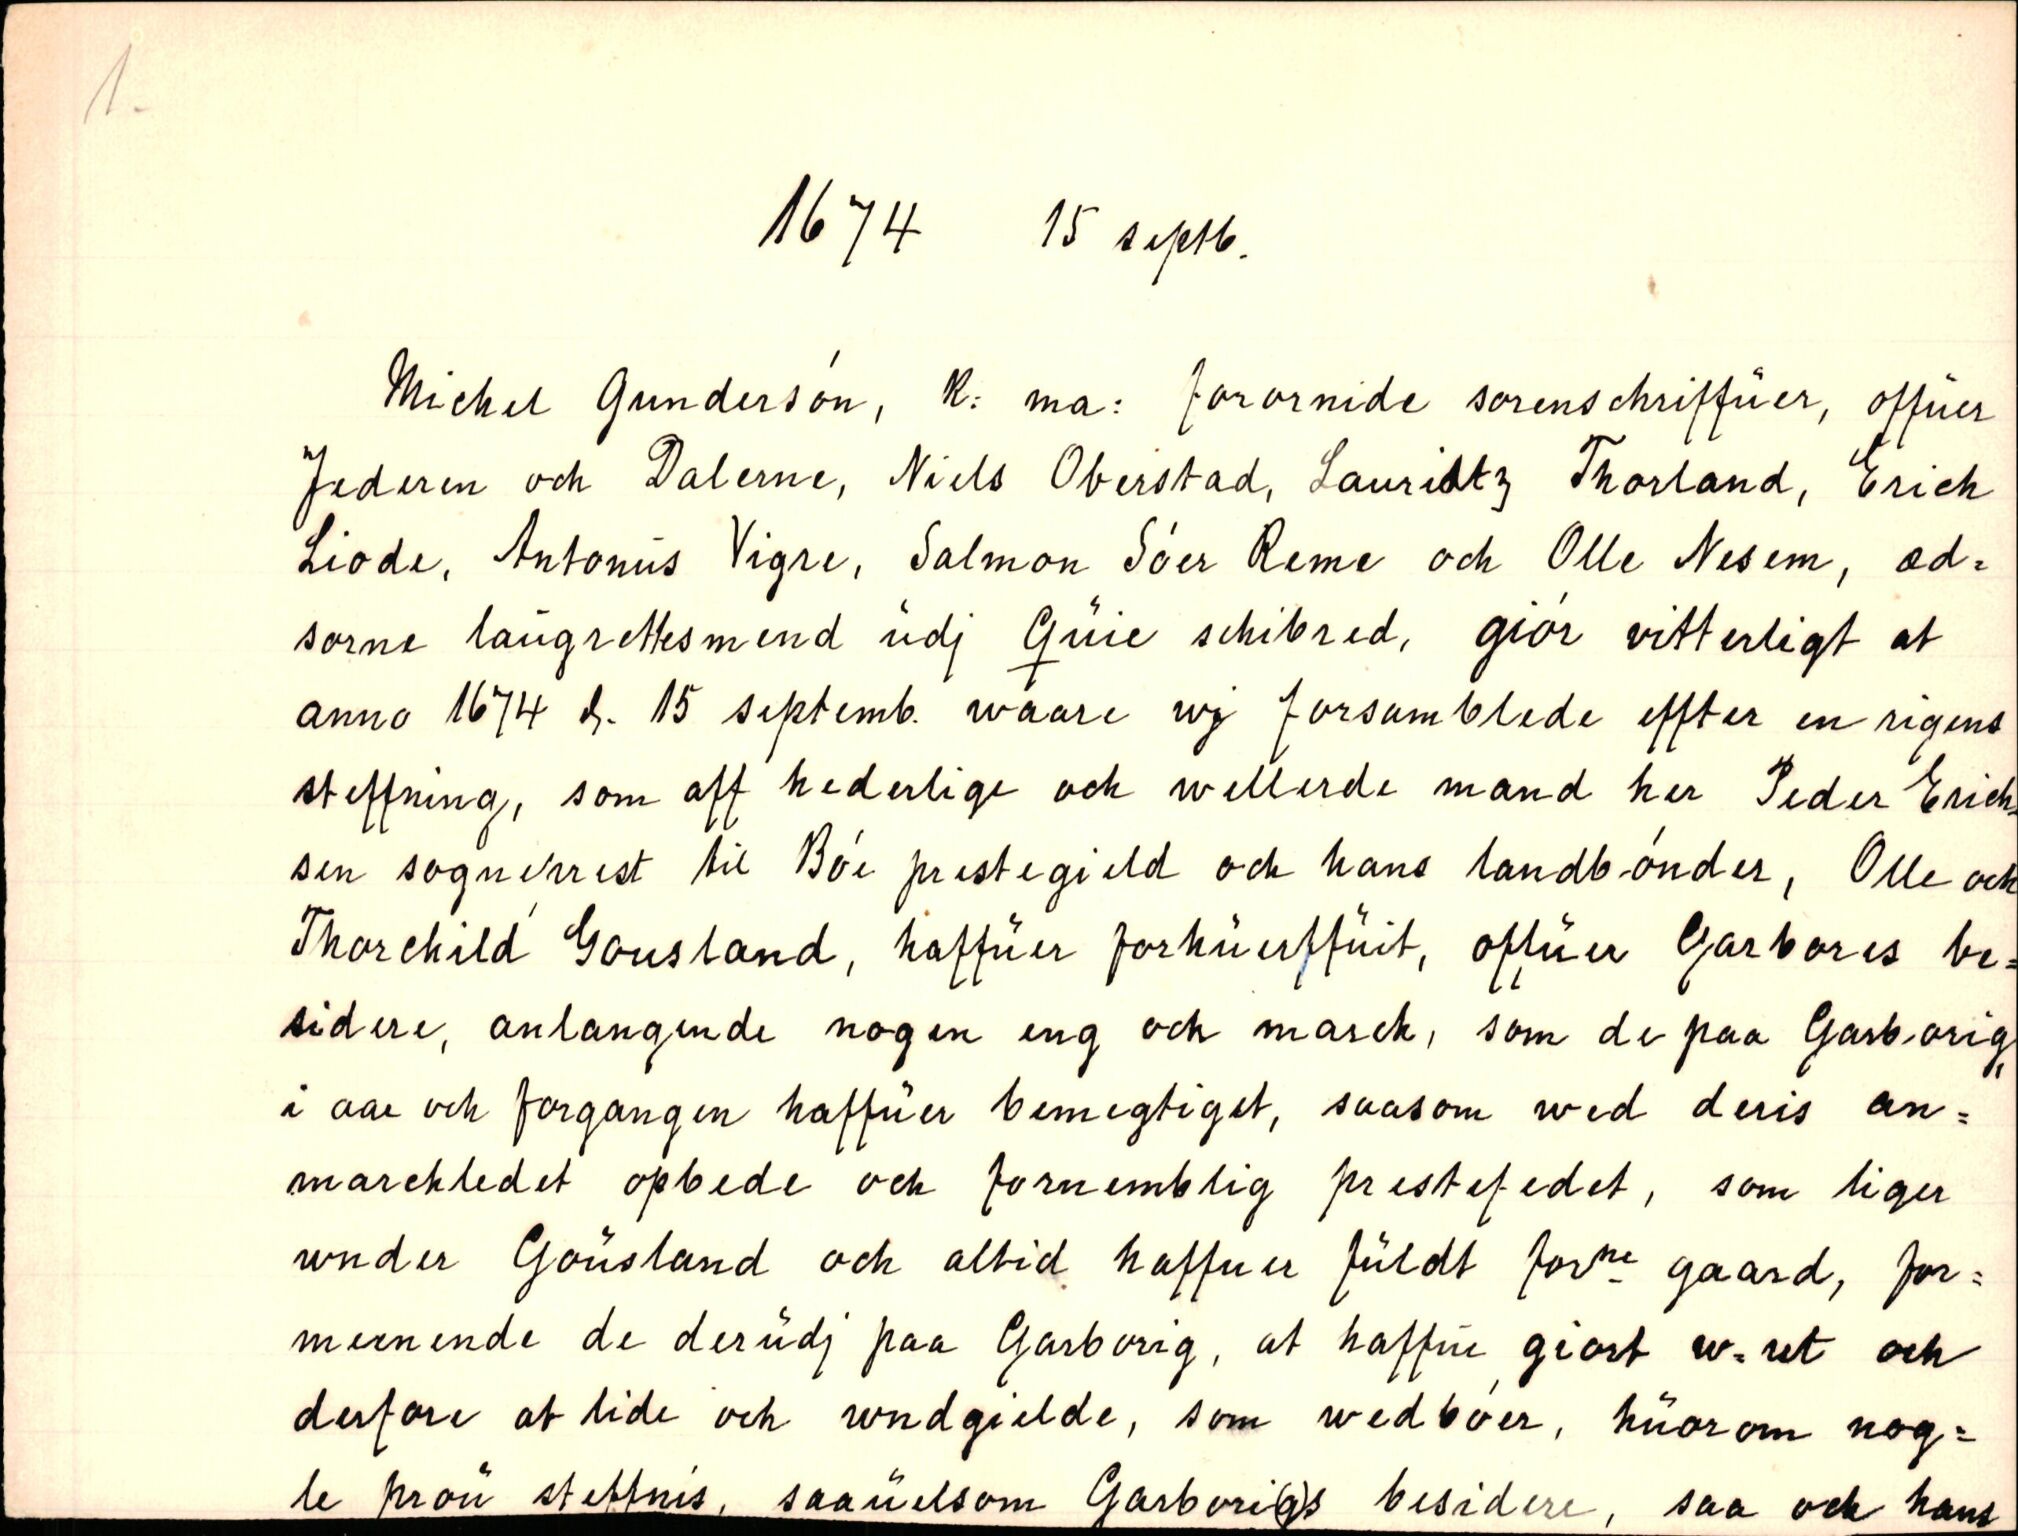 1.
1674 15 septb.
Michel Gundersón, K: ma: forornide sorenschriffüer, offüer
Jederen och Dalerne, Niels Oberstad, Lauridtz Thorland, Erich
Liode, Antoniüs Vigre, Salmon Sóer Reme och Olle Nesem, æd=
sorne laügrettesmend üdj Qüie schibred, giór vitterligt at
anno 1674 d. 15 septemb. waare wj forsamblede effter en rigens
steffning, som aff hederlige och wellerde mand her Peder Erich=
sen sogneprest til Bóe prestegield och hans landbónder, Olle och
Thorchild Gousland, haffüer forhüerffüit, offüer Garbores be=
sidere, anlangende nogen eng och marck, som de paa Garborig,
i aar och forgangen haffüer bemegtiget, saasom wed deris an=
marckledet opbede och fornemblig prestefedet, som liger
wnder Goüsland och altid haffuer füldt forne gaard, for=
meenende de derüdj paa Garborig, at haffue giort w=ret och
derfore at lide och wndgielde, som wedbóer, hüorom nog=
le proü steffnis, saaüelsom Garbori(g)s besidere, saa och hans